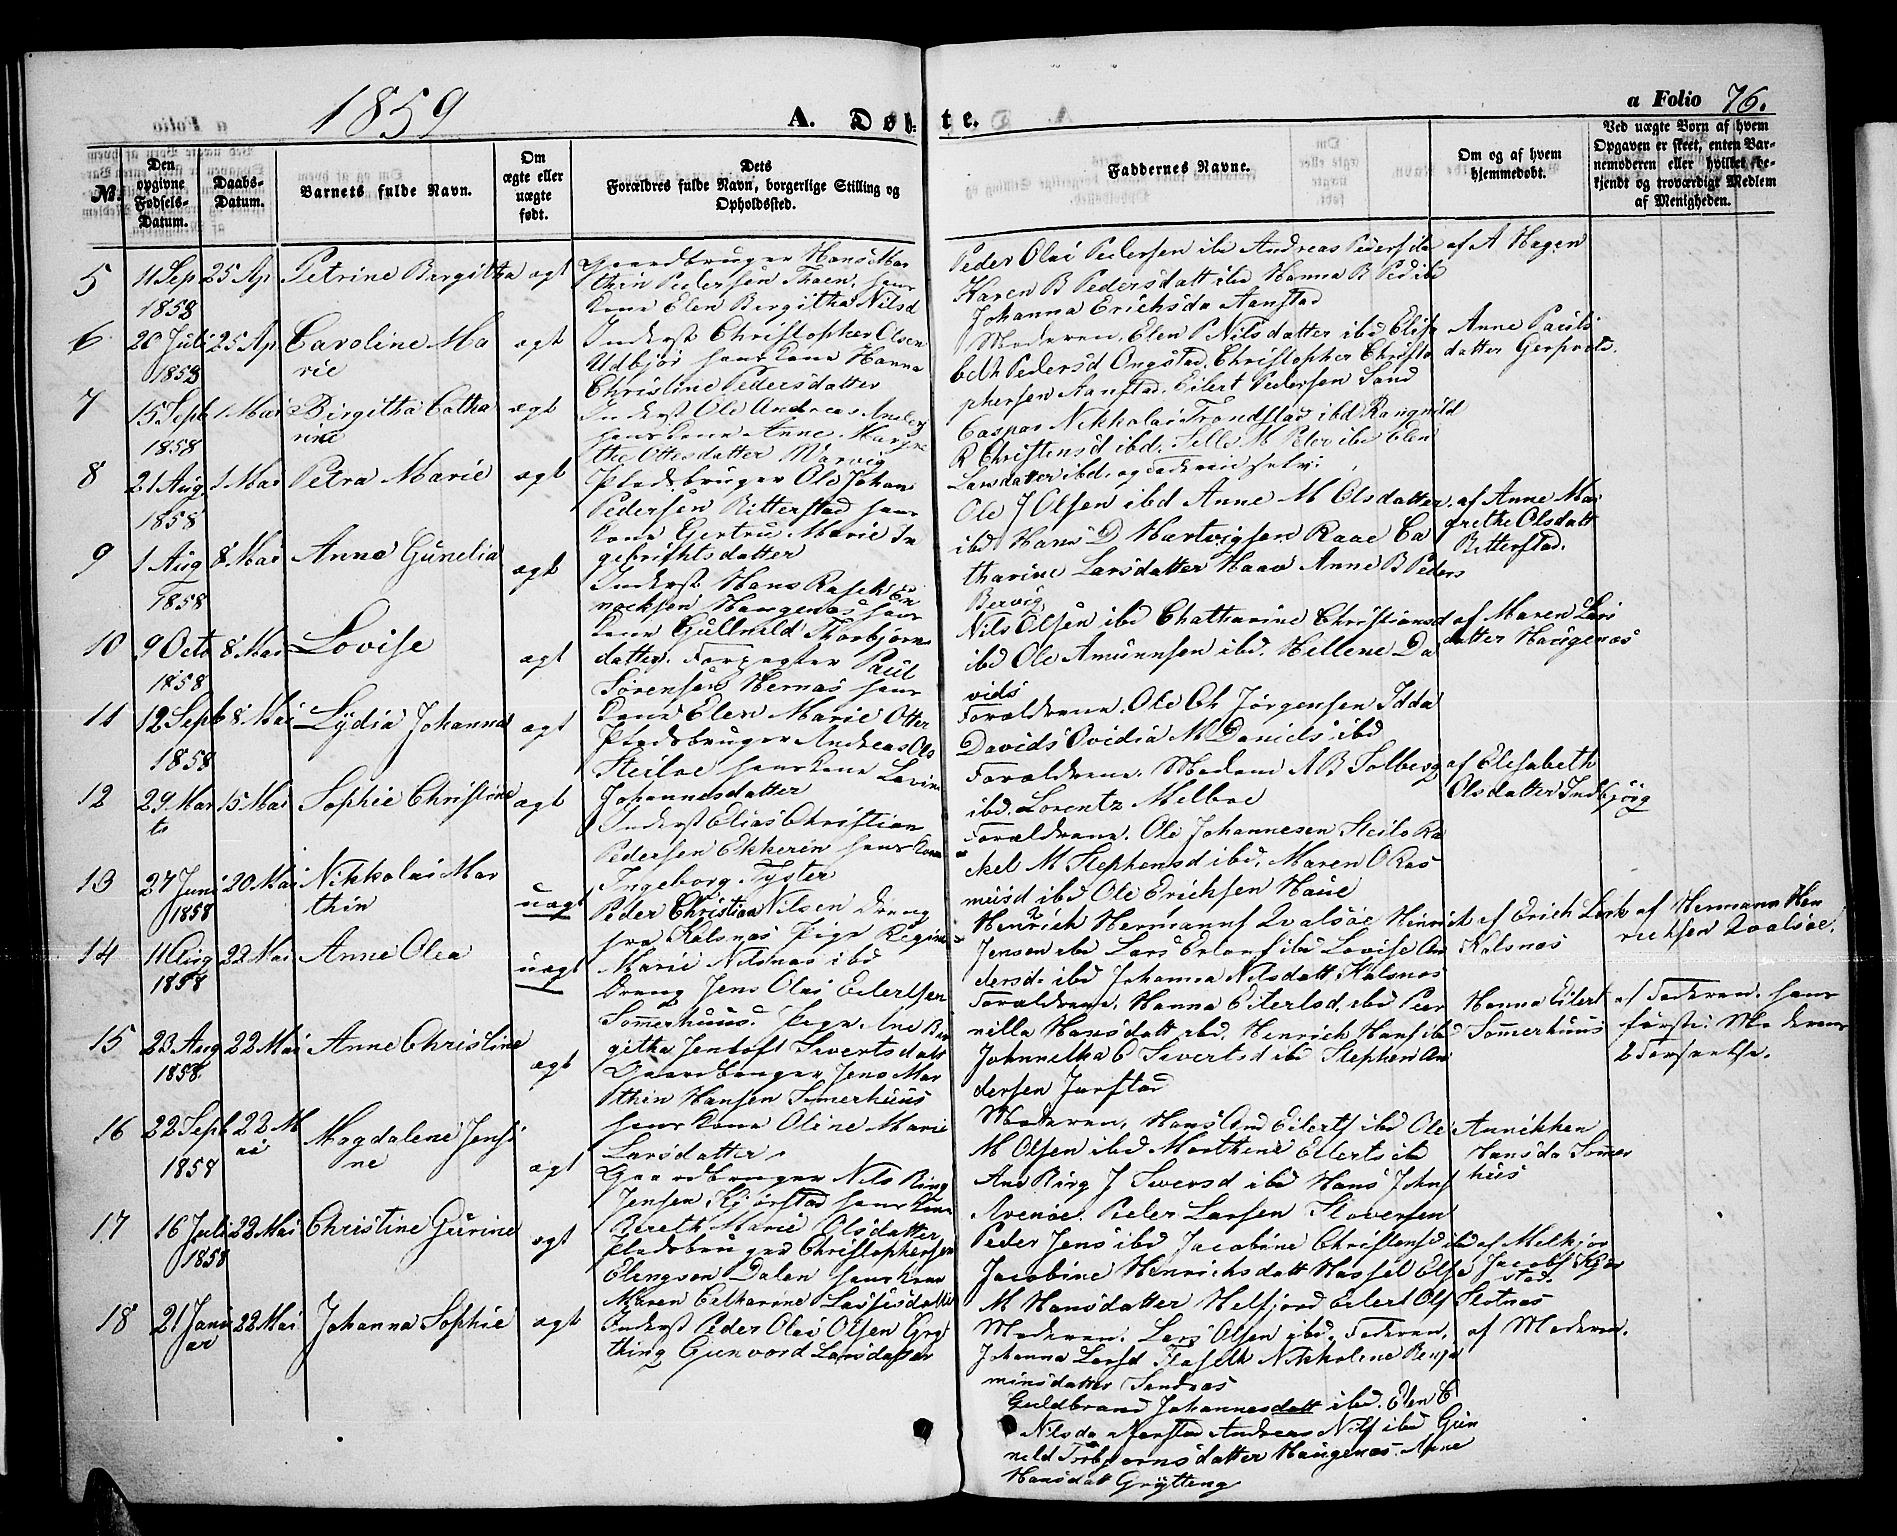 1859
A. Døbte.
a Folio 76.
No.
Den opgivne Fødsels-Datum.
Daabs-Datum.
Barnets fulde Navn.
Om ægte eller uægte født.
Dets Forældres fulde Navn, borgerlige Stilling og Opholdssted.
Faddernes Navne.
Om og af hvem hjemmedøbt.
Ved uægte Børn af hvem Opgaven er skeet, enten Barnemoderen eller hvilket bekjendt og troværdigt Medlem af Menigheden.
5
11 Sep 1858
25 Ap
Petrine Bergitha
ægt
Gaardbruger Hans Mar
thin Pedersen Thoen, hans
Kone Elen Bergitha Nilsd
Peder Olai Pedersen ibd Andreas Peders ibd
Karen B Pedersdatt ibd Hanna B Ped ibd
Johanna Erichsda Aanstad
af A Hagen
6
20 Juli 1858
25 Ap
Caroline Ma
rie
ægt
Inderst Christopher Olsen
Udbjør hans Kone Hanna
Christine Pedersdatter
Moderen, Elen P Nilsdatter ibd Elisa
beth Pedersd Ongstad, Christopher Christo
phersen Aanstad. Eilert Pedersen Sand
Anne Pauls
datter
7
15 Septb 1858
1 Mai
Birgitha Catha
rine
ægt
Inderst Ole Andreas Anders
hans Kone Anne Margre
the Ottesdatter Norvig
Caspar Nikholai Trondstad ibd. Rangnild
R Christensd ibd. Sille M Peder ibd Elen
Larsdatter ibd. og Faderen selv.
8
21 Aug 1858
1 Mai
Petra Marie
ægt
Pladsbruger Ole Johan
Pedersen Ritterstad hans
Kone Gertru Marie In
gebrichtsdatter
Ole J Olsen ibd Anne M Olsdatter
ibd Hans D Hartvigsen Raae Ca
tharine Larsdatter Haav Anne B Peders
Bervig
af Anne Mar
grethe Olsdatt
Ritterstad.
9
1 Aug 1858
8 Mai
Anna Gunelia
ægt
Inderst Hans Rasch En
nocksen Haugenæs hans
Kone Gullneld Thorbjørns
datter.
Nils Olsen ibd Chatharine Christiansd
ibd Ole Amunnsen ibd. Hellene Da
vids
af Maren Lars
datter Haugenæs
10
9 Octo 1858
8 Mai
Lovise
ægt
Forpagter Paul
Sørensen Hernæs hans
Kone Elen Marie Otter
Forældrene. Ole Ch Jørgensen Idda
Davids Ovidia M Daniels ibd
11
12 Septb 1858
8 Mai
Lydia Johanna
ægt
Pladsbruger Andreas Ols
Steiloe hans Kone Lavine
Johannesdatter
Forældrene. Madam A B Solberg
ibd. Lorentz Melboe
af Elisabeth
Olsdatter Indbjørg
12
29 Mar
ts
15 Mai
Sophie Christine
ægt
Inderst Elias Christian
Pedersen Ekkerin hans Kone
Ingeborg Tyster
Forældrene. Ole Johannesen Steilo Ra
kel M Stephensd ibd. Maren O Ras
musd ibd Ole Erichsen Haue
13
27 Juni 1858
20 Mai
Nikkolai Mar
thin
uægt
Peder Christian Nilsen Dreng
fra Kalsnæs Pige Regine
Marie Nilsnæs ibd
Henrich Hermanns Qvalsøe Henrich
Jensen ibd Lars Erlorf ibd Lovise An
dersd. ibd Johanna Nilsdatt Kalsnæs
af Erich Lock
Kalsnæs
af Hermann Hen
richsen Qvalsøe.
14
11 Aug 1858
22 Mai
Anne Olea
uægt
Dreng Jens Olai Eilertsen
Sommerhuus. Pige. Ane Bir
githa Jentoft Sivertsdatt
Forældrene. Hanna Eilertsd. ibd Per
nilla Hansdatt ibd, Henrich Hans ibd
Johnnetha C Sivertsd ibd Stephen An
dersen Jørstad
Hanna Eilert
Sommerhuus
af Faderen. hans
første: Moderens
2 Forseelse.
15
23 Aug 1858
22 Mai
Anne Christine
ægt
Gaardbruger Jens Mar
thin Hansen Somerhuus
hans Kone Oline Marie
Larsdatter.
Moderen, Hans And Eilerts ibd Ole
M Olsen ibd Marthine Eilerts ibd
Ane Birg J Siversd ibd Hans Johns
Avenøe. Peder Larsen Sloversen
Annikken
Hansda Sommer
huus
16
22 Septb 1858
22 M
ai
Magdalene Jensi
ne
ægt
Gaardbruger Nils Ring
Jensen Kjørstad hans Kone
Bereth Marie Olsdatter
Peder Jens ibd Jacobine Christensd ibd
Jacobine Henrichsdatt Hassel Else
M Hansdatter Helfjord Eilert Ols
af Melkjor
Jacobs Kjør
stad.
Slotnæs
17
16 Juli 1858
22 Mai
Christine Gurine
ægt
Pladsbruger Christophersen
Elingsen Dalen hans Kone
Maren Catharine Larsisdatter
Moderen. Lars Olsen ibd. Faderen,
Johanna Larsd Flaseth Nikkoline Benja
minsdatter Sandnæs
18
21 Janu
ar
22 Mai
Johanna Sophie
ægt
Inderst Peder Olai Olsen Gry
thing Gunvord Larsdatter
Guldbrand Johannesdatt ibd. Elen C
Nilsda Aarstad Andreas Nils ibd Gun
neld Torbjørnsdatter Haugenæs. Anne
Hansdatt Grytteng
af Moderen.